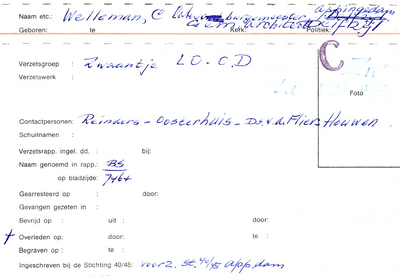 Naam etc.: Welleman, C burgemeester Appingedam
Geboren: te Kerk: Politiek:
C
Verzetsgroep : Zwaantje LO-CD
Verzetswerk :
Foto
Contactpersonen: Reinders - Oosterhuis - Ds. v.d. Flier Houwen
Schuilnaam :
Verzetsrapp. ingel. dd. : bij:
Naam genoemd in rapp.: BS
op bladzijde:
Gearresteerd op : door:
Gevangen gezeten in :
Bevrijd op : uit : door:
Overleden op: : door: te :
Begraven op : te :
Ingeschreven bij de Stichting 40/45: voorz. St. 40/45 App.dam